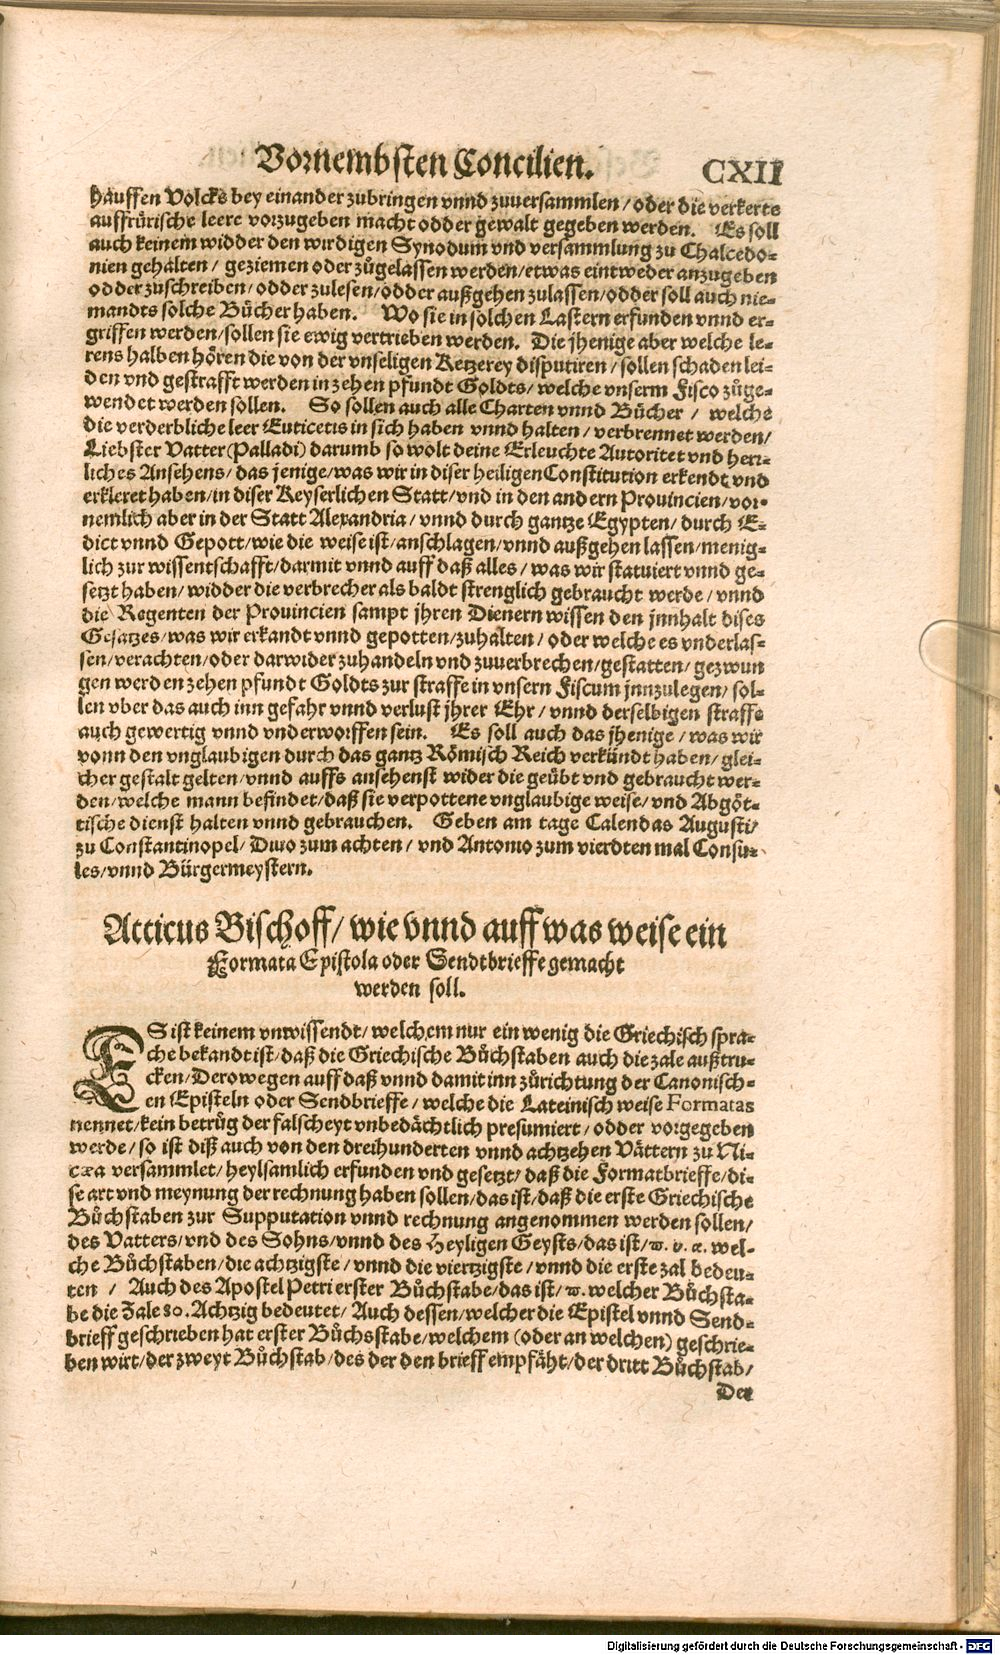 Vornembsten Concilien. CXII
hauffen Volcks bey einander zubringen vnnd zuuersammlen / oder die verkerte
auffrürische leere vorzugeben macht odder gewalt gegeben werden. Es soll
auch keinem widder den wirdigen Synodum vnd versammlung zu Chalcedo-
nien gehalten / geziemen oder zůgelassen werden/etwas eintweder anzugeben
odder zuschreiben/odder zulesen/odder außgehen zulassen/odder soll auch nie-
mandts solche Bücher haben. Wo sie in solchen Lastern erfunden vnnd er-
griffen werden/sollen sie ewig vertrieben werden. Die jhenige aber welche le-
rens halben hören die von der vnseligen Ketzerey disputiren/sollen schaden lei-
den vnd gestrafft werden in zehen pfundt Goldts/welche vnserm Fisco zůge-
wendet werden sollen. So sollen auch alle Charten vnnd Bücher / welche
die verderbliche leer Euticetis in sich haben vnnd halten/verbrennet werden/
Liebster Vatter (Palladi) darumb so wolt deine Erleuchte Autoritet vnd herr-
liches Ansehens/das jenige/was wir in diser heiligen Constitution erkendt vnd
erkleret haben/in diser Keyserlichen Statt/vnd in den andern Prouincien/vor-
nemlich aber in der Statt Alexandria/vnnd durch gantze Egypten/durch E-
dict vnnd Gepott/wie die weise ist/anschlagen/vnnd außgehen lassen/menig-
lich zur wissentschafft/darmit vnnd auff daß alles/was wir statuiert vnnd ge-
setzt haben/widder die verbrecher als baldt strenglich gebraucht werde/vnnd
die Regenten der Prouincien sampt jhren Dienern wissen den jnnhalt dises
Gesatzes/was wir erkandt vnnd gepotten/zuhalten/oder welche es vnderlas-
sen/verachten/oder darwider zuhandeln vnd zuuerbrechen/gestatten/gezwun
gen werden zehen pfundt Goldts zur straffe in vnsern Fiscum jnnzulegen/sol-
len vber das auch inn gefahr vnnd verlust jhrer Ehr/vnnd derselbigen straffe
auch gewertig vnnd vnderworffen sein. Es soll auch das jhenige/was wir
vonn den vnglaubigen durch das gantz Römisch Reich verkündt haben/glei-
cher gestalt gelten/vnnd auffs ansehenst wider die geübt vnd gebraucht wer-
den/welche mann befindet/daß sie verpottene vnglaubige weise/vnd Abgöt-
tische dienst halten vnnd gebrauchen. Geben am tage Calendas Augusti/
zu Constantinopel/Diuo zum achten/vnd Antonio zum vierdten mal Consu-
les/vnnd Bürgermeystern.
Atticus Bischoff/wie vnnd auff was weise ein
Formata Epistola oder Sendtbrieffe gemacht
werden soll.
ES ist keinem vnwissendt/welchem nur ein wenig die Griechisch spra-
che bekandt ist/daß die Griechische Bůchstaben auch die zale außtru-
cken/Derowegen auff daß vnnd damit inn zůrichtung der Canonisch-
en Episteln oder Sendbrieffe/welche die Lateinisch weise Formatas
nennet/kein betrůg der falscheyt vnbedächtlich presumiert/odder vorgegeben
werde/so ist diß auch von den dreihunderten vnnd achtzehen Vättern zu Ni-
cæa versammlet/heylsamlich erfunden vnd gesetzt/daß die Formatbrieffe/di-
se art vnd meynung der rechnung haben sollen/das ist/daß die erste Griechische
Bůchstaben zur Supputation vnnd rechnung angenommen werden sollen/
des Vatters/vnd des Sohns/vnnd des Heyligen Geysts/das ist/ϖ. υ. α. wel-
che Bůchstaben/die achtzigste/vnnd die viertzigste/vnnd die erste zal bedeu-
ten / Auch des Apostel Petri erster Bůchstabe/das ist/ϖ. welcher Bůchsta-
be die Zale 80. Achtzig bedeutet/Auch dessen/welcher die Epistel vnnd Send-
brieff geschrieben hat erster Bůchsstabe/welchem (oder an welchen) geschrie-
ben wirt/der zweyt Bůchstab/des der den brieff empfäht/der dritt Bůchstab/
Der
Digitalisierung gefördert durch die Deutsche Forschungsgemeinschaft - DFG